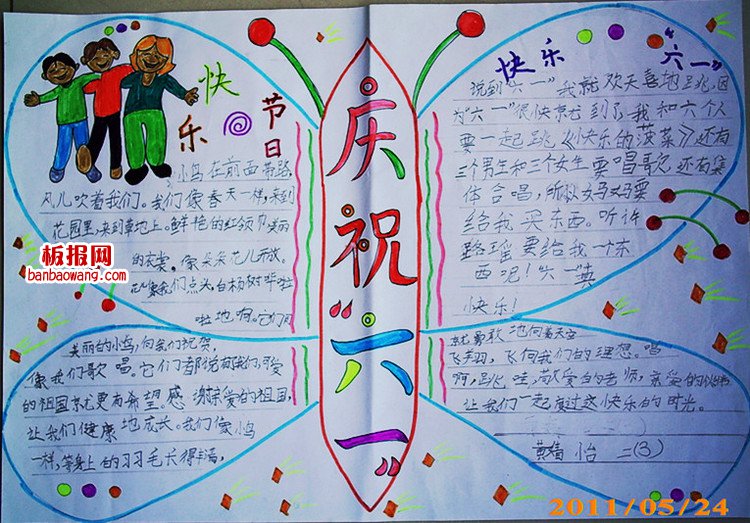 快乐
节日
小鸟在前面带路,
风儿吹着我们。我们像春天一样,来到
花园里,来到草地上。鲜艳的红领巾,美丽
的衣裳,像朵朵花儿开放。
花儿像我们点头,白杨树哗啦
啦地响。它们同
美丽的小鸟,向我们祝贺,
像我们歌唱。它们都说有我们,可爱
的祖国就更有希望。感谢亲爱的祖国,
让我们健康地成长。我们像小鸟
一样,等身上的羽毛长得丰满,
庆祝“六一”
快乐“六一”
说到“六一”我就欢天喜地跳,因
为“六一”很快就到了,我和六个人
要一起跳《快乐的菠菜》还有
三个男生和三个女生要唱歌,还有集
体合唱,所以妈妈要
给我买东西。听许
路瑶要给我一个东
西呢!“六一”真
快乐!
就勇敢地向着天空
飞翔,飞向我们的理想。唱
啊,跳哇,敬爱的老师,亲爱的伙伴
让我们一起度过这快乐的时光。
黄婧怡 二(3)
板报网
banbaowang.com
2011/05/24